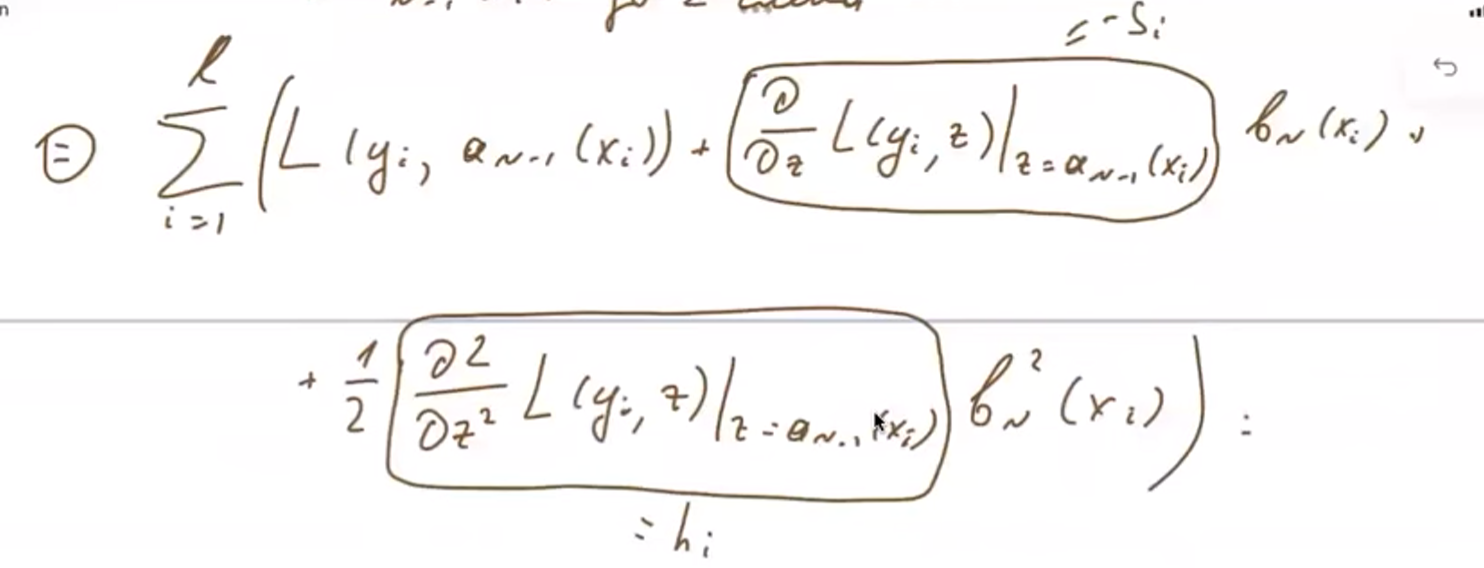 = -s_i
⊜ \sum_{i=1}^{\ell} ( L(y_i, a_{N-1}(x_i)) + \frac{\partial}{\partial z} L(y_i, z) |_{z = a_{N-1}(x_i)} b_N(x_i) +
+ \frac{1}{2} \frac{\partial^2}{\partial z^2} L(y_i, z) |_{z = a_{N-1}(x_i)} b_N^2(x_i) ) =
= h_i